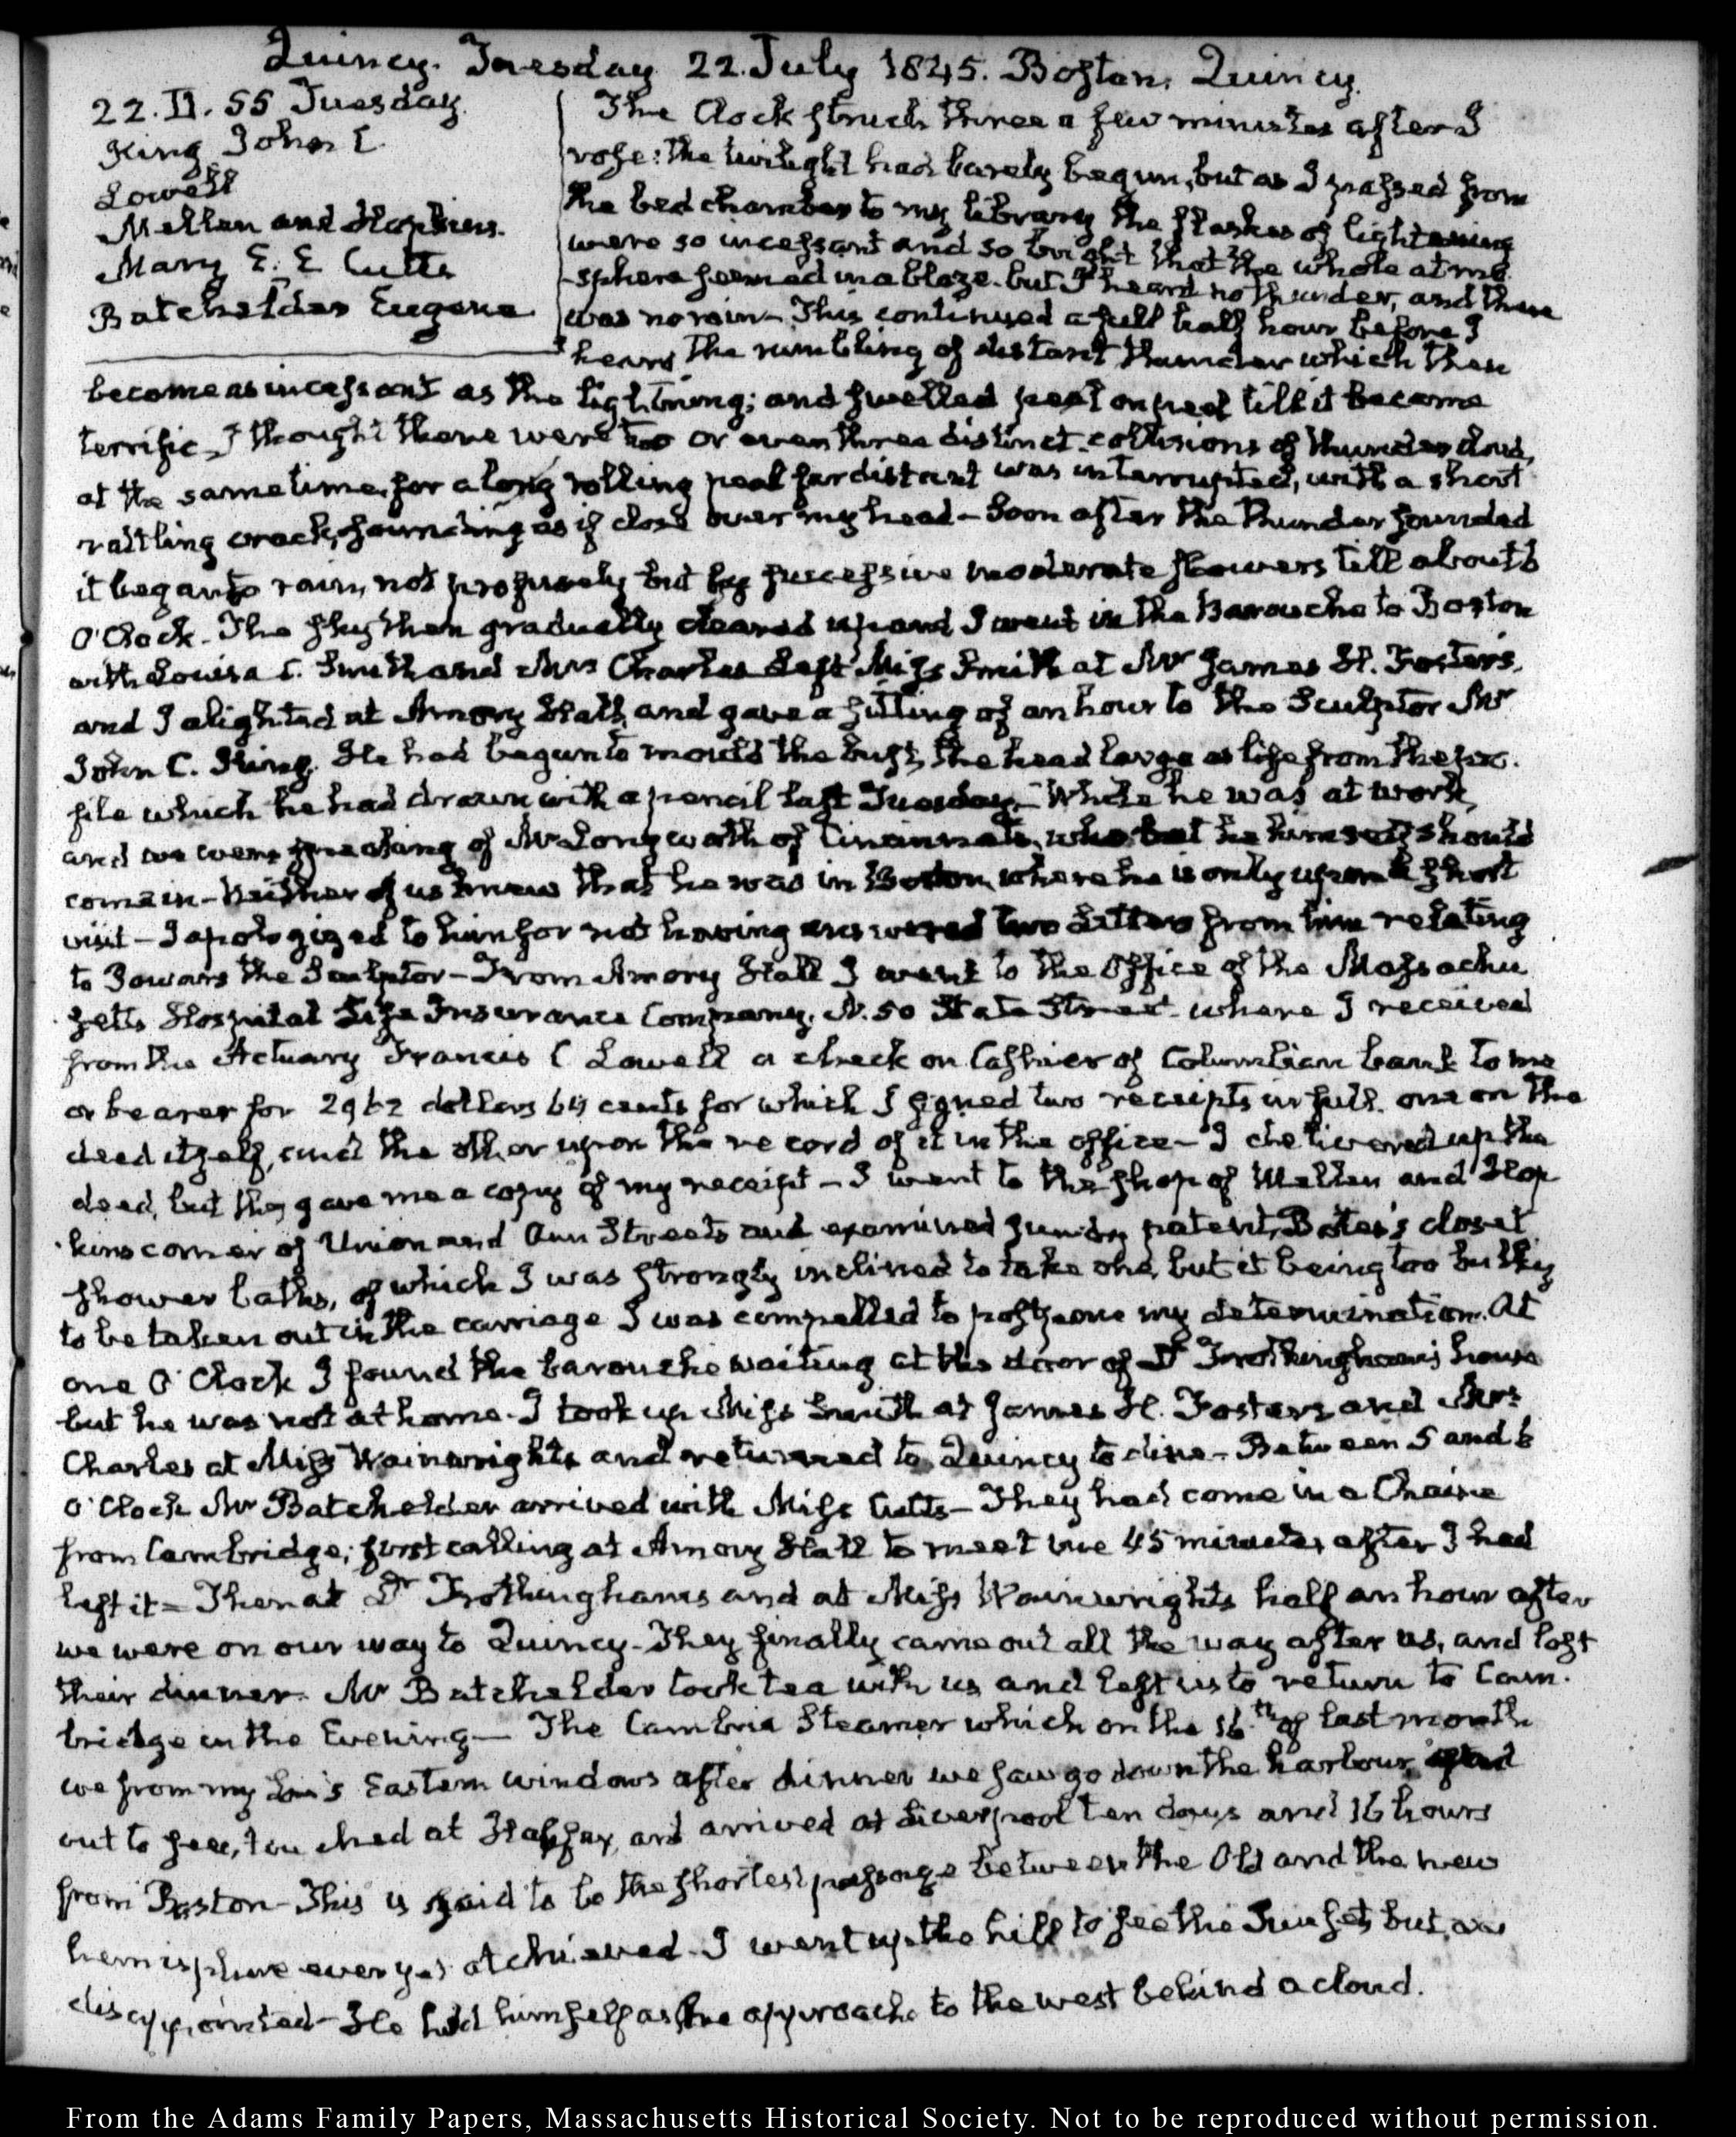 Quincy. Tuesday 22. July 1845. Boston, Quincy.
22. II. 55 Tuesday.
King John C.
Lowell
Mellen and Hopkins.
Mary E. E Cutts
Batchelder Eugene
The Clock struck three a few minutes after I
rose: the twilight had barely begun, but as I passed from
the bed chamber to my library the flashes of lightening
were so incessant and so bright that the whole atmo
sphere seemed in a blaze. but I heard no thunder, and there
was no rain – This continued a full half hour before I
heard the rumbling of distant thunder which then
become as incessant as the lightning; and swelled peal on peal till it became
terrific – I thought there were two or even three distinct collisions of thunder cloud,
at the same time. for a long rolling peal far distant was interrupted, with a short
rattling crack, sounding as if close over my head – Soon after the thunder sounded
it began to rain, not profusely but by successive moderate showers till about 6
O'Clock. The sky then gradually cleared up and I went in the Barouche to Boston
with Louisa C. Smith and Mrs Charles Left Miss Smith at Mr James H. Foster's,
and I alighted at Amory Hall, and gave a sitting of an hour to the Sculptor Mr
John C. King. He had begun to mould the bust, the head large as life from the pro.
file which he had drawn with a pencil last Tuesday – While he was at work,
and we were speaking of Mr Longworth of Cincinnati, who but he himself should
come in – Neither of us knew that he was in Boston, where he is only upon a short
visit – I apologized to him for not having answered two Letters from him relating
to Powers the Sculptor – From Amory Hall I went to the Office of the Massachu
setts Hospital Life Insurance Company, N. 50 State Street – where I received
from the Actuary Francis C Lowell a check on Cashier of Columbian bank to me
or bearer for 2962 dollars 64 cents for which I signed two receipts in full. one on the
deed itself, and the other upon the record of it in the office – I delivered up the
deed, but they gave me a copy of my receipt – I went to the shop of Mellen and Hop
kins corner of Union and Ann Streets and examined sundry patent, Bates's closet
shower baths, of which I was strongly inclined to take one, but it being too bulky
to be taken out in the carriage I was compelled to postpone my determination. At
one O'Clock I found the barouche waiting at the door of Dr Frothingham's house
but he was not at home. I took up Miss Smith at James H. Fosters and Mrs
Charles at Miss Wainwrights and returned to Quincy to dine – Between 5 and 6
O'Clock Mr Batchelder arrived with Miss Cutts – They had come in a Chaise
from Cambridge; first calling at Amory Hall to meet me 45 minutes after I had
left it – Then at Dr Frothinghams and at Miss Wainwrights half an hour after
we were on our way to Quincy – They finally came out all the way after us, and lost
their dinner. Mr Batchelder took tea with us and left us to return to Cam.
bridge in the Evening – The Cambria Steamer which on the 16.th of last month
we from my Son's Eastern windows after dinner we saw go down the harbour
out to sea, touched at Halifax, and arrived at Liverpool ten days and 16 hours
from Boston – This is said to be the shortest passage between the Old and the new
hemisphere ever yet atchieved – I went up the hill to see the Sun set, but was
disappointed – He hid himself as he approach to the west behind a cloud.
From the Adams Family Papers, Massachusetts Historical Society. Not to be reproduced without permission.